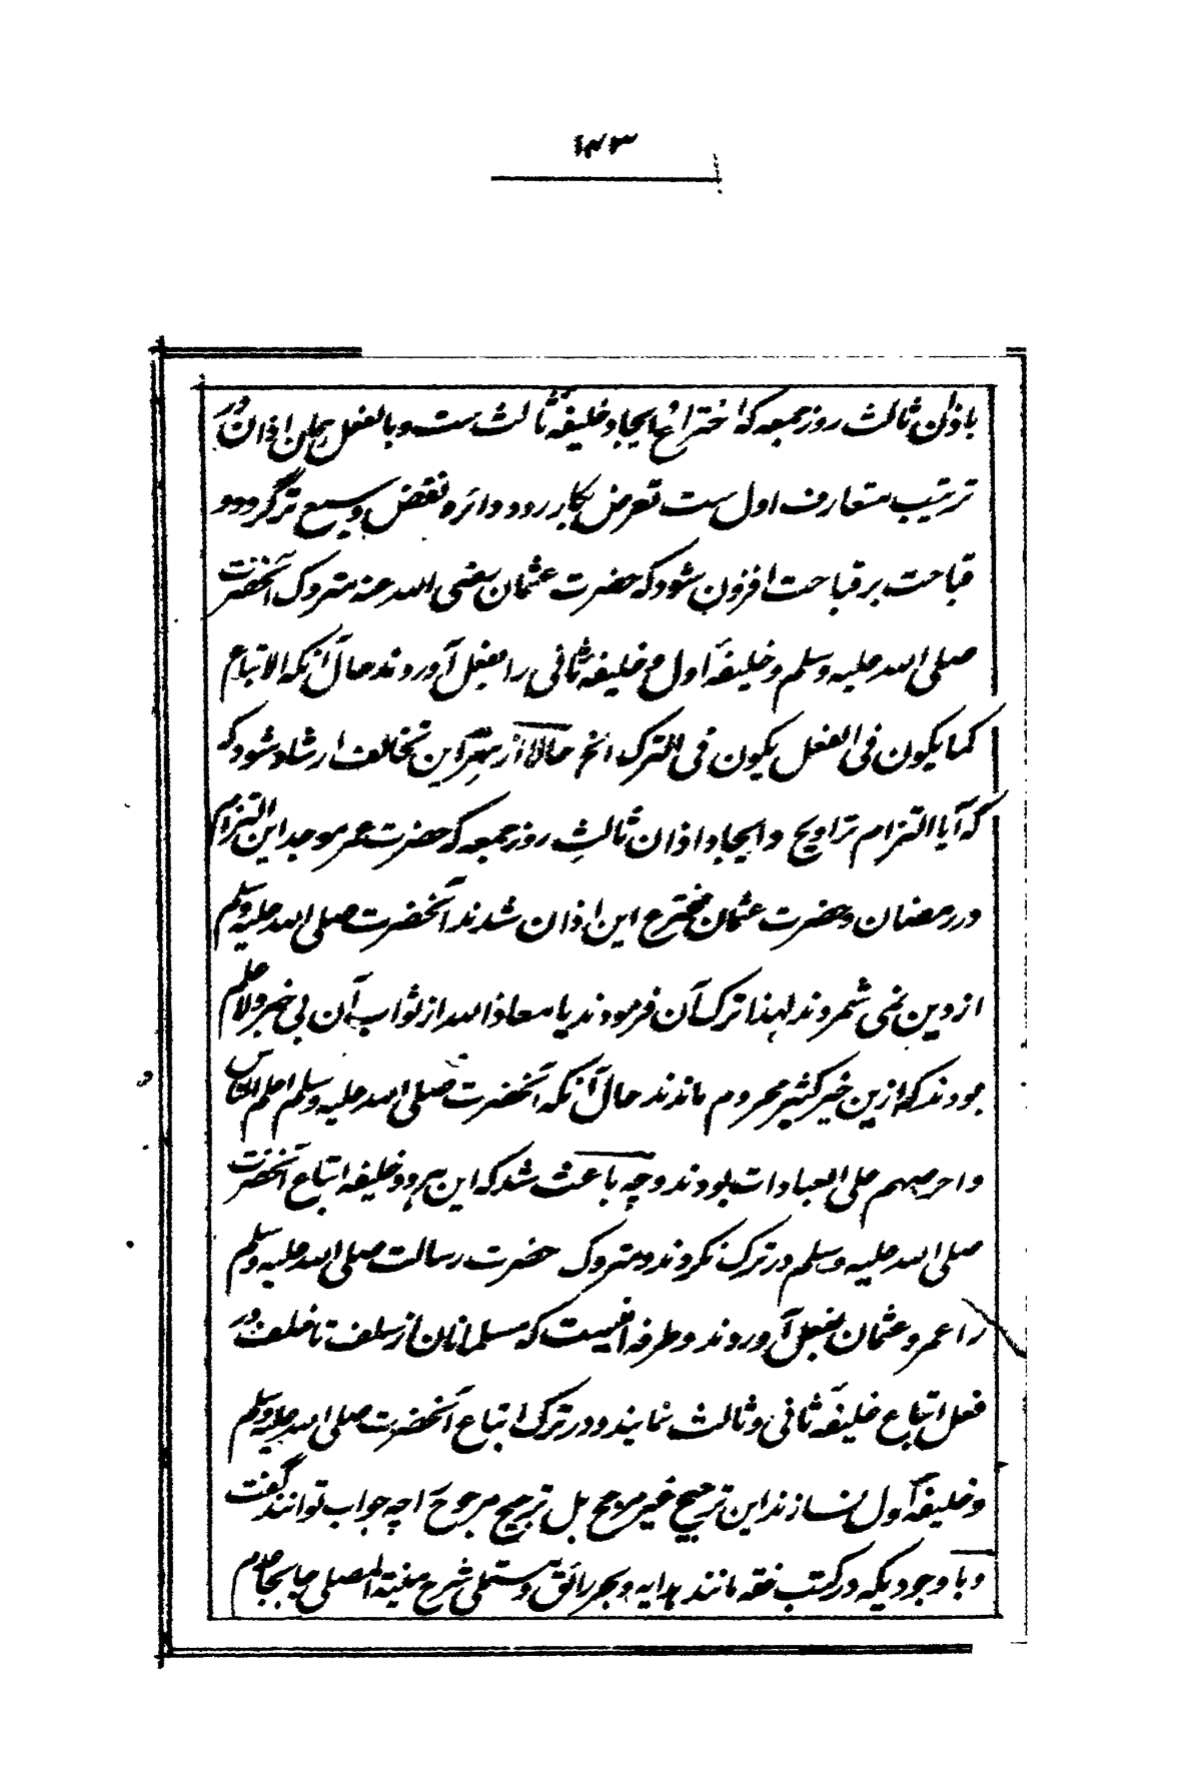 ۱۴۳
باذان ثالث روز جمعه که اختراع و ایجاد خلیفهٔ ثالث ست و بالفعل همان اذان در
ترتیب متعارف اول ست تعرض بکار رود و دائره نقض وسیع تر گردد و
قباحت بر قباحت افزون شود که حضرت عثمان رضی الله عنه متروک آنحضرت
صلی الله علیه وسلم و خلیفهٔ اول و خلیفهٔ ثانی را بفعل آوردند حال آنکه الاتباع
کما یکون فی الفعل یکون فی الترک الخ حالا از بهر این تخالف ارشاد شود که
که آیا التزام تراویح و ایجاد اذان ثالث روز جمعه که حضرت عمر موجد این التزام
در رمضان و حضرت عثمان مخترع این اذان شدند آنحضرت صلی الله علیه وسلم
از دین نمی شمردند لهذا ترک آن فرمودند یا معاذ الله از ثواب آن بی خبر و لا علم
بودند که ازین خیر کثیر محروم ماندند حال آنکه آنحضرت صلی الله علیه وسلم اعلم الناس
و احرصهم علی العبادات بودند و چه باعث شد که این هر دو خلیفه اتباع آنحضرت
صلی الله علیه وسلم در ترک نکردند و متروک حضرت رسالت صلی الله علیه وسلم
را عمر و عثمان بفعل آوردند و طرفه اینست که مسلمانان از سلف تا خلف در
فعل اتباع خلیفهٔ ثانی و ثالث نمایند و در ترک اتباع آنحضرت صلی الله علیه وسلم
و خلیفهٔ اول نسازند این ترجیح غیر مرجح بل ترجیح مرجوح را چه جواب توانند گفت
و با وجودیکه در کتب فقه مانند هدایه و بحر رائق و مستملی شرح منیة المصلی جابجا